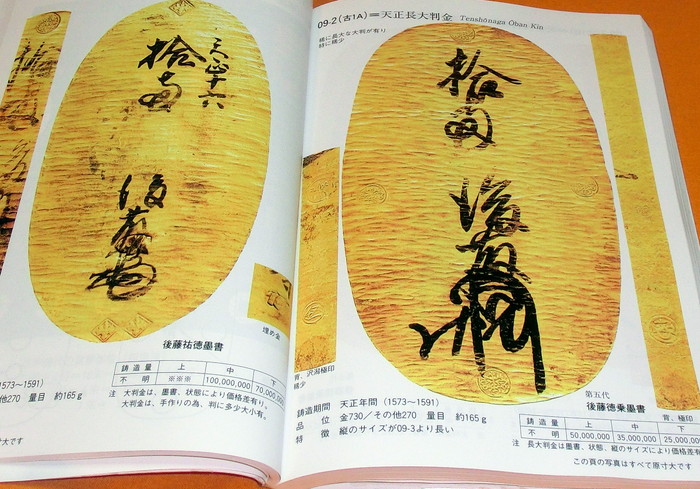 天正十六
拾両
後藤
埋め金
後藤祐徳墨書
鋳造量 上 中
不明 ※※※ 100,000,000 70,000
1573〜1591)
他270 量目 約165g
注 大判金は、墨書、状態により価格差有り。
大判金は、手作りの為、判に多少大小有。
大です
09-2(古1A)=天正長大判金 Tenshōnaga Ōban Kin
特に長大な大判が有り
特に稀少
拾両
後藤
背、沢潟極印
稀少
鋳造期間 天正年間 (1573〜1591)
品位 金730/その他270 量目 約165g
特徴 縦のサイズが09-3より長い
第五代
後藤徳乗墨書
背、極印
鋳造量 上 中 下
不明 50,000,000 35,000,000 25,000
注 長大判金は墨書、状態、縦のサイズにより価格差有
この頁の写真はすべて原寸大です